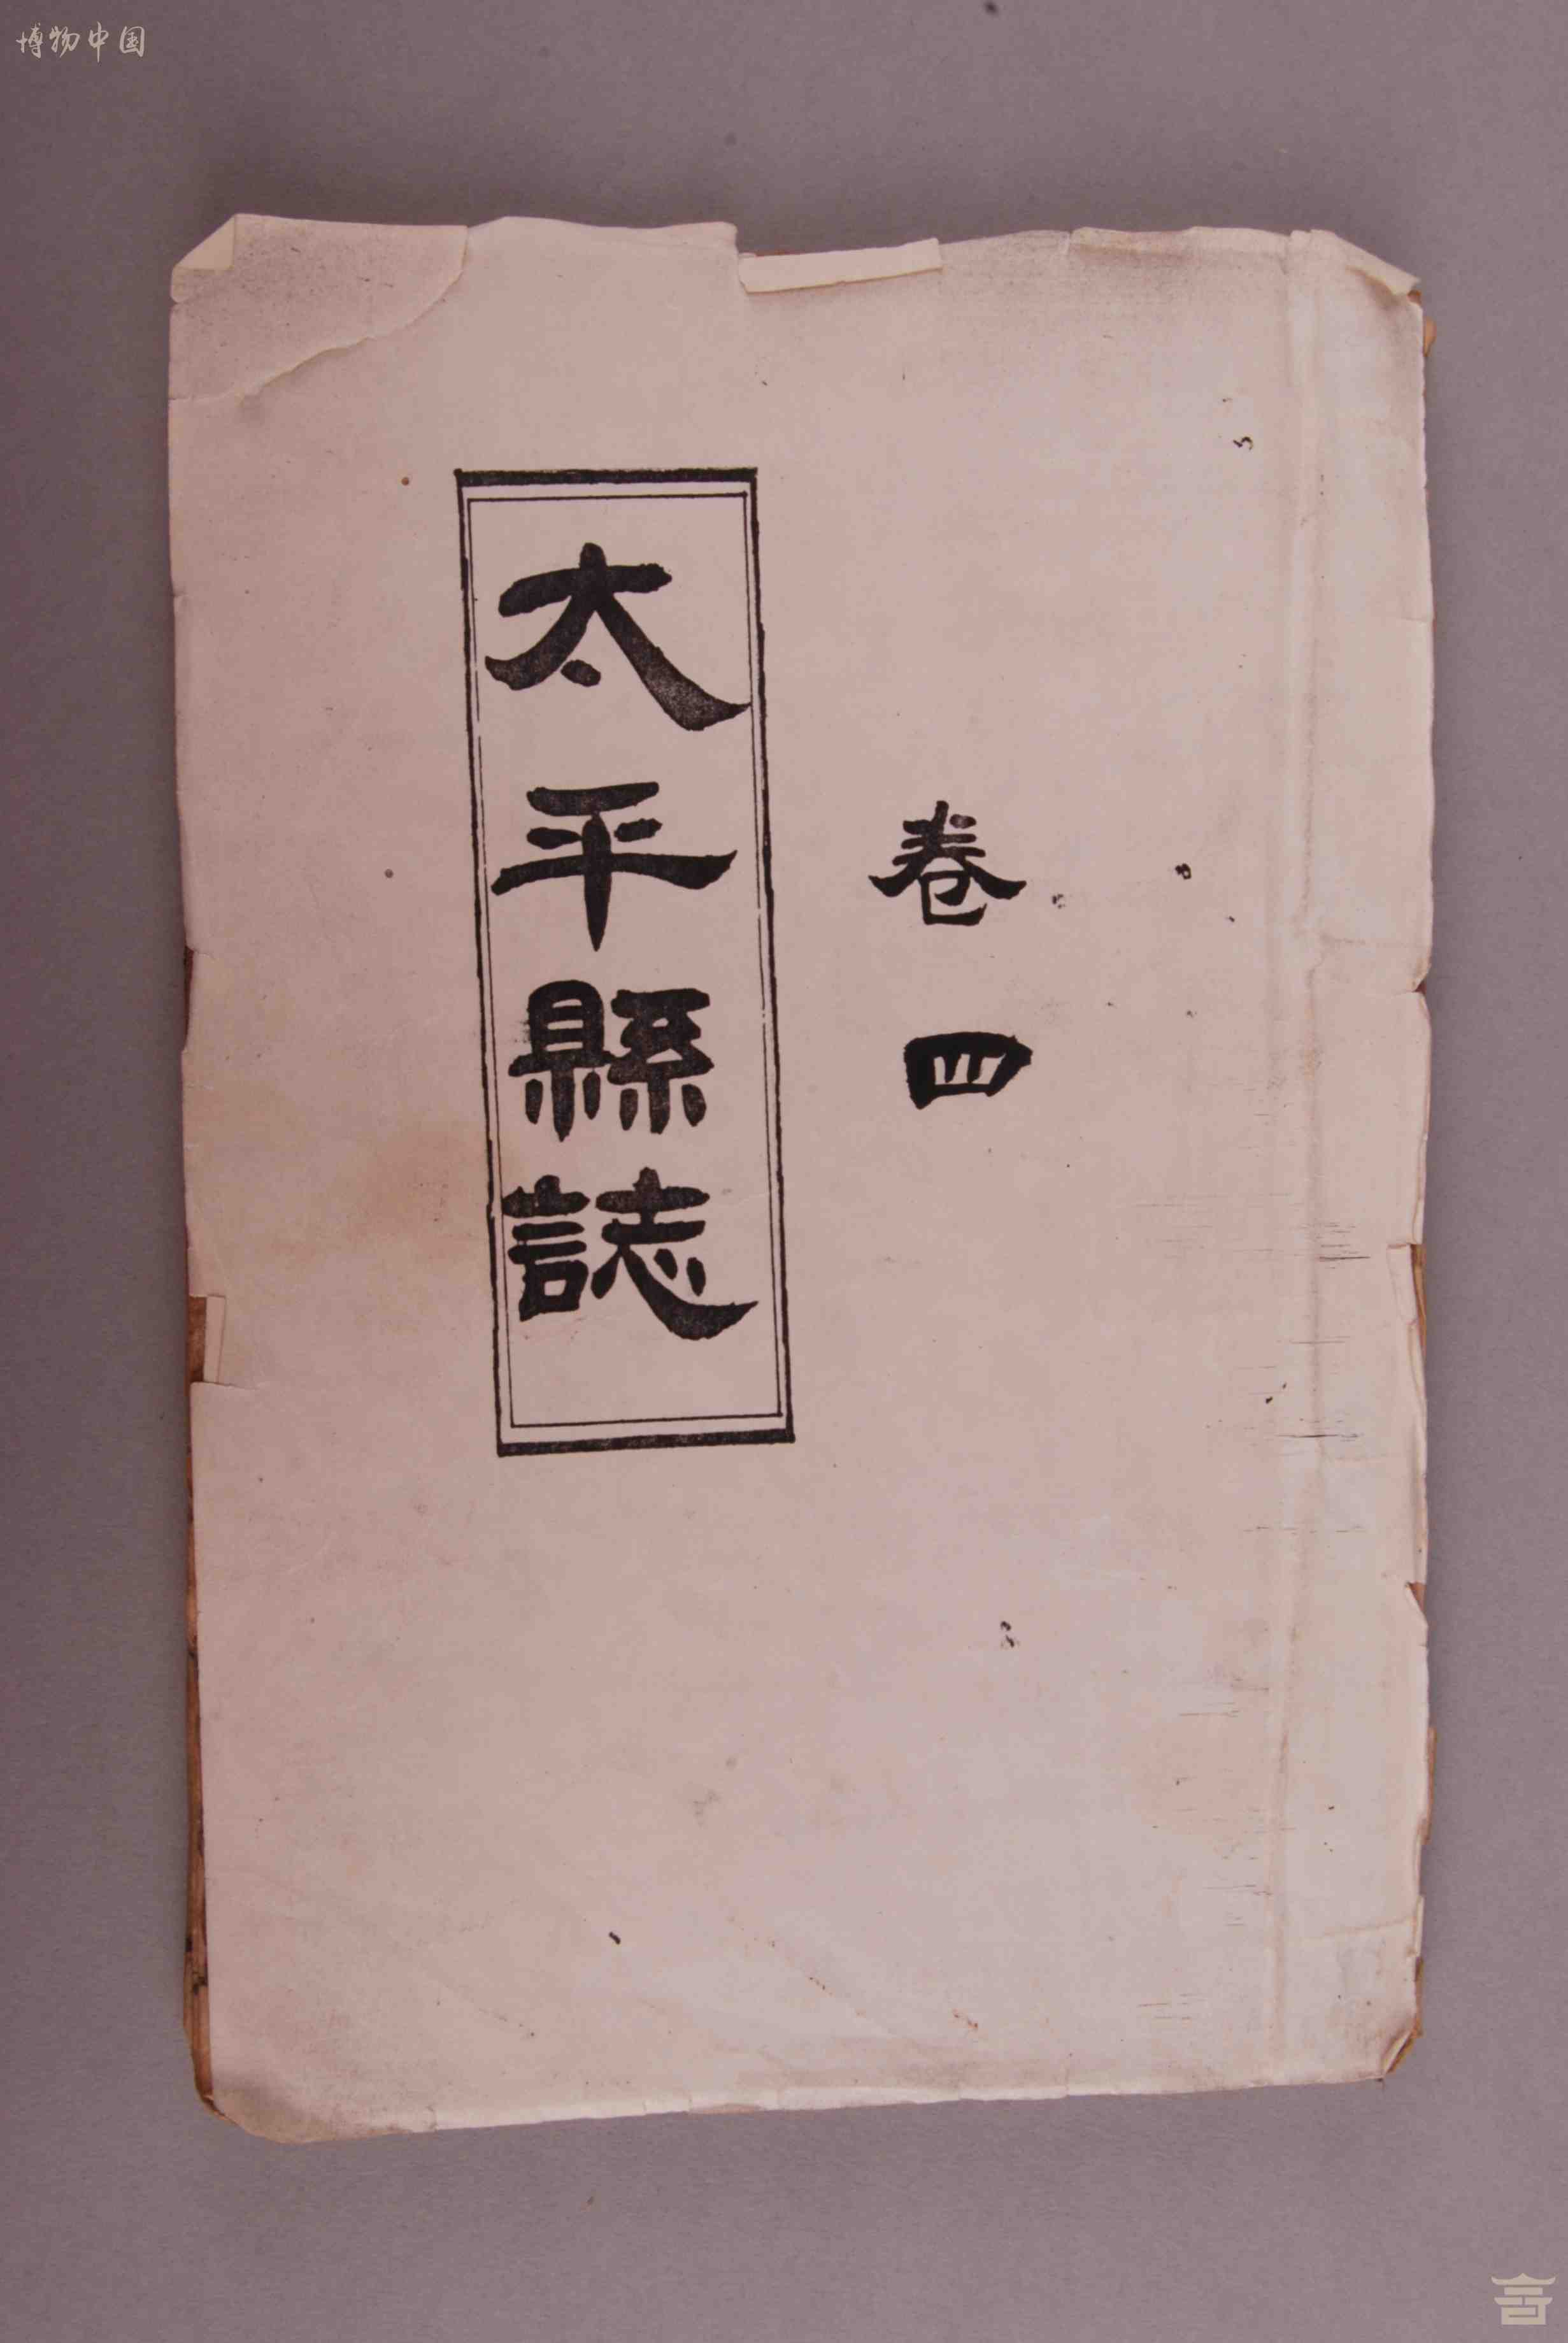 博物中国
卷四
太平縣誌